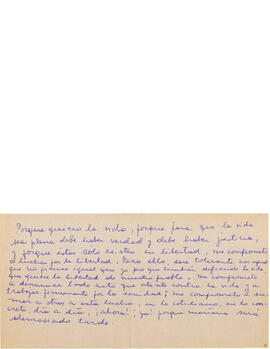 Porque quiero la vida, porque para que la vida
sea plena debe haber verdad y debe haber justicia,
y porque éstas solo existen en libertad, me comprometo
a luchar por la libertad. Para ello, seré tolerante con aquel
que no piense igual que yo pero que también defiende la vida
que quiere la libertad de nuestro pueblo. Me comprometo
a denunciar todo acto que atente contra la vida y a
trabajar firmemente por la verdad; me comprometo a su-
mar a otros a esta lucha, en lo cotidiano, en lo con-
creto, día a día, ¡ahora!, ¡ya! porque mañana será
demasiado tarde.